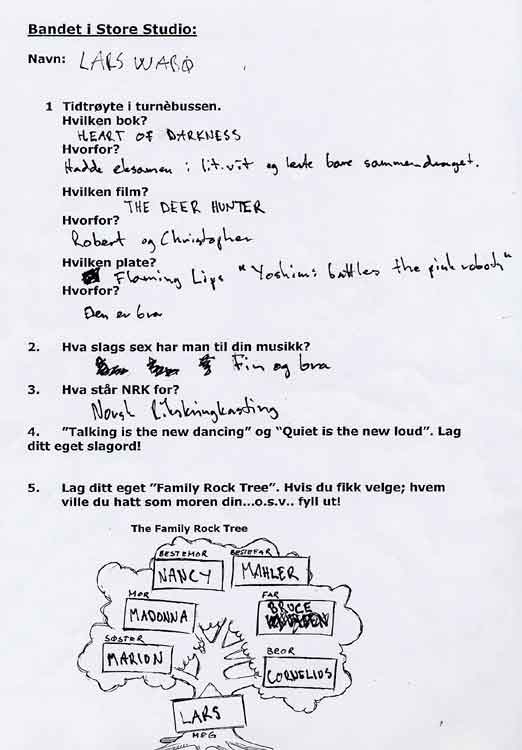 Bandet i Store Studio:
Navn: LARS WARØ
1 Tidtrøyte i turnèbussen.
Hvilken bok?
HEART OF DARKNESS
Hvorfor?
Hadde eksamen i lit.vit og leste bare sammendraget.
Hvilken film?
THE DEER HUNTER
Hvorfor?
Robert og Christopher
Hvilken plate?
Flaming Lips "Yoshimi battles the pink robots"
Hvorfor?
Den er bra
2. Hva slags sex har man til din musikk?
Fin og bra
3. Hva står NRK for?
Norsk Rikskringkasting
4. ”Talking is the new dancing” og “Quiet is the new loud”. Lag
ditt eget slagord!
5. Lag ditt eget ”Family Rock Tree”. Hvis du fikk velge; hvem
ville du hatt som moren din...o.s.v.. fyll ut!
The Family Rock Tree
BESTEMOR BESTEFAR
NANCY MAHLER
MOR FAR
MADONNA BRUCE
SØSTER BROR
MARION CORNELIOS
LARS
MEG